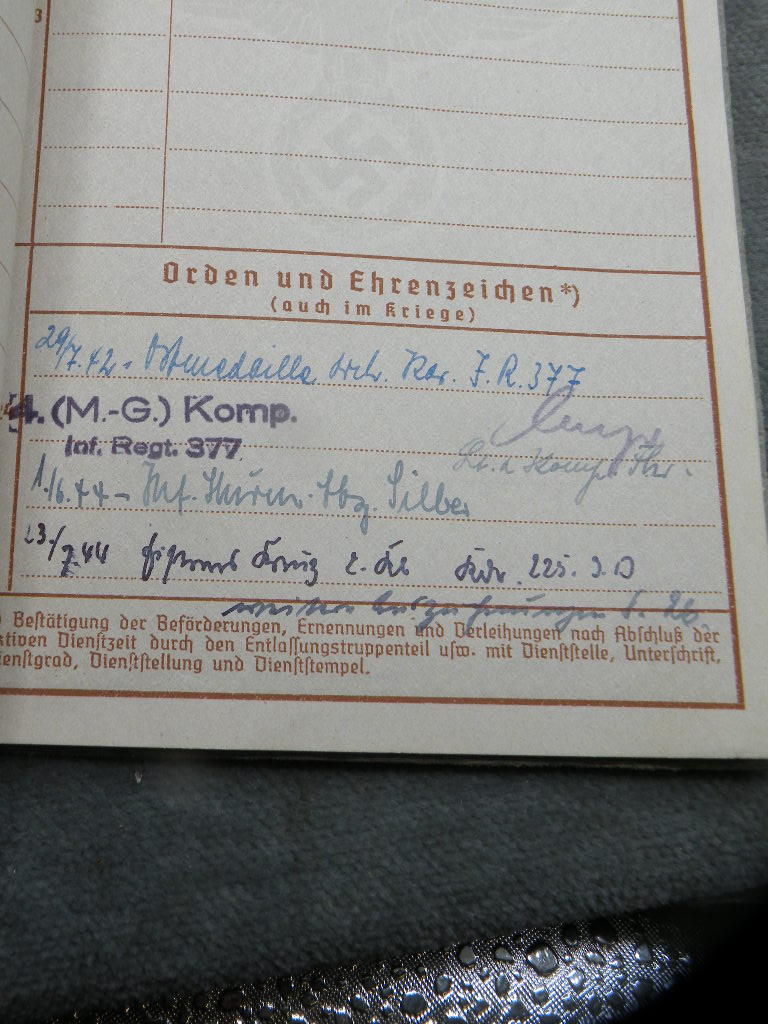 3
Orden und Ehrenzeichen*)
(auch im Kriege)
29/7.42. Ostmedaille I.R. 377
4. (M.-G.) Komp.
Inf. Regt. 377
Lt. u. Komp. Fhr.
1./6.44 – Inf. Sturm. Abz. Silber
23./7.44 Eisernes Kreuz 2. Kl. 225. I.D
weitere Auszeichnungen S.
Bestätigung der Beförderungen, Ernennungen und Verleihungen nach Abschluß der
ktiven Dienstzeit durch den Entlassungstruppenteil usw. mit Dienststelle, Unterschrift,
ienstgrad, Dienststellung und Dienststempel.